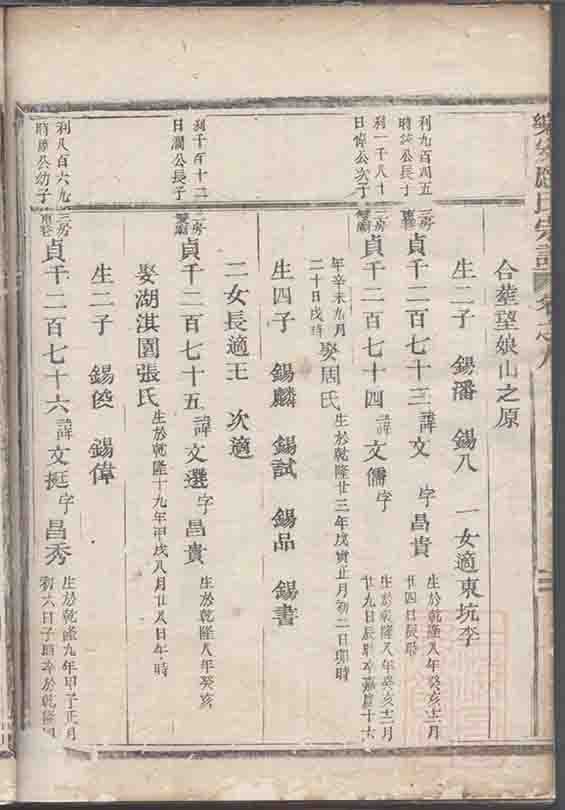 合葬望娘山之原
生二子 錫潘 錫八 一女適東坑李
利九百四五
時 公長子
三房
貞千二百七十三 諱文 字昌貴
生於乾隆八年癸亥十二月
廿四日辰時
利一千八十
日偉公次子
二房
貞千二百七十四 諱文儒 字
生於乾隆八年癸亥十二月
廿九日辰時卒嘉慶十六
年辛未九月
二十日戌時
娶周氏
生於乾隆廿三年戊寅正月初二日卯時
生四子 錫麟 錫試 錫品 錫書
二女長適王 次適
利千百十二
日瀾公長子
二房
貞千二百七十五 諱文選 字昌貴
生於乾隆八年癸亥
娶湖淇園張氏
生於乾隆十九年甲戌八月廿八日午時
生二子 錫 錫偉
利八百六九
時 公幼子
三房
貞千二百七十六 諱文挺 字昌秀
生於乾隆九年甲子正月
初六日子時卒於乾隆